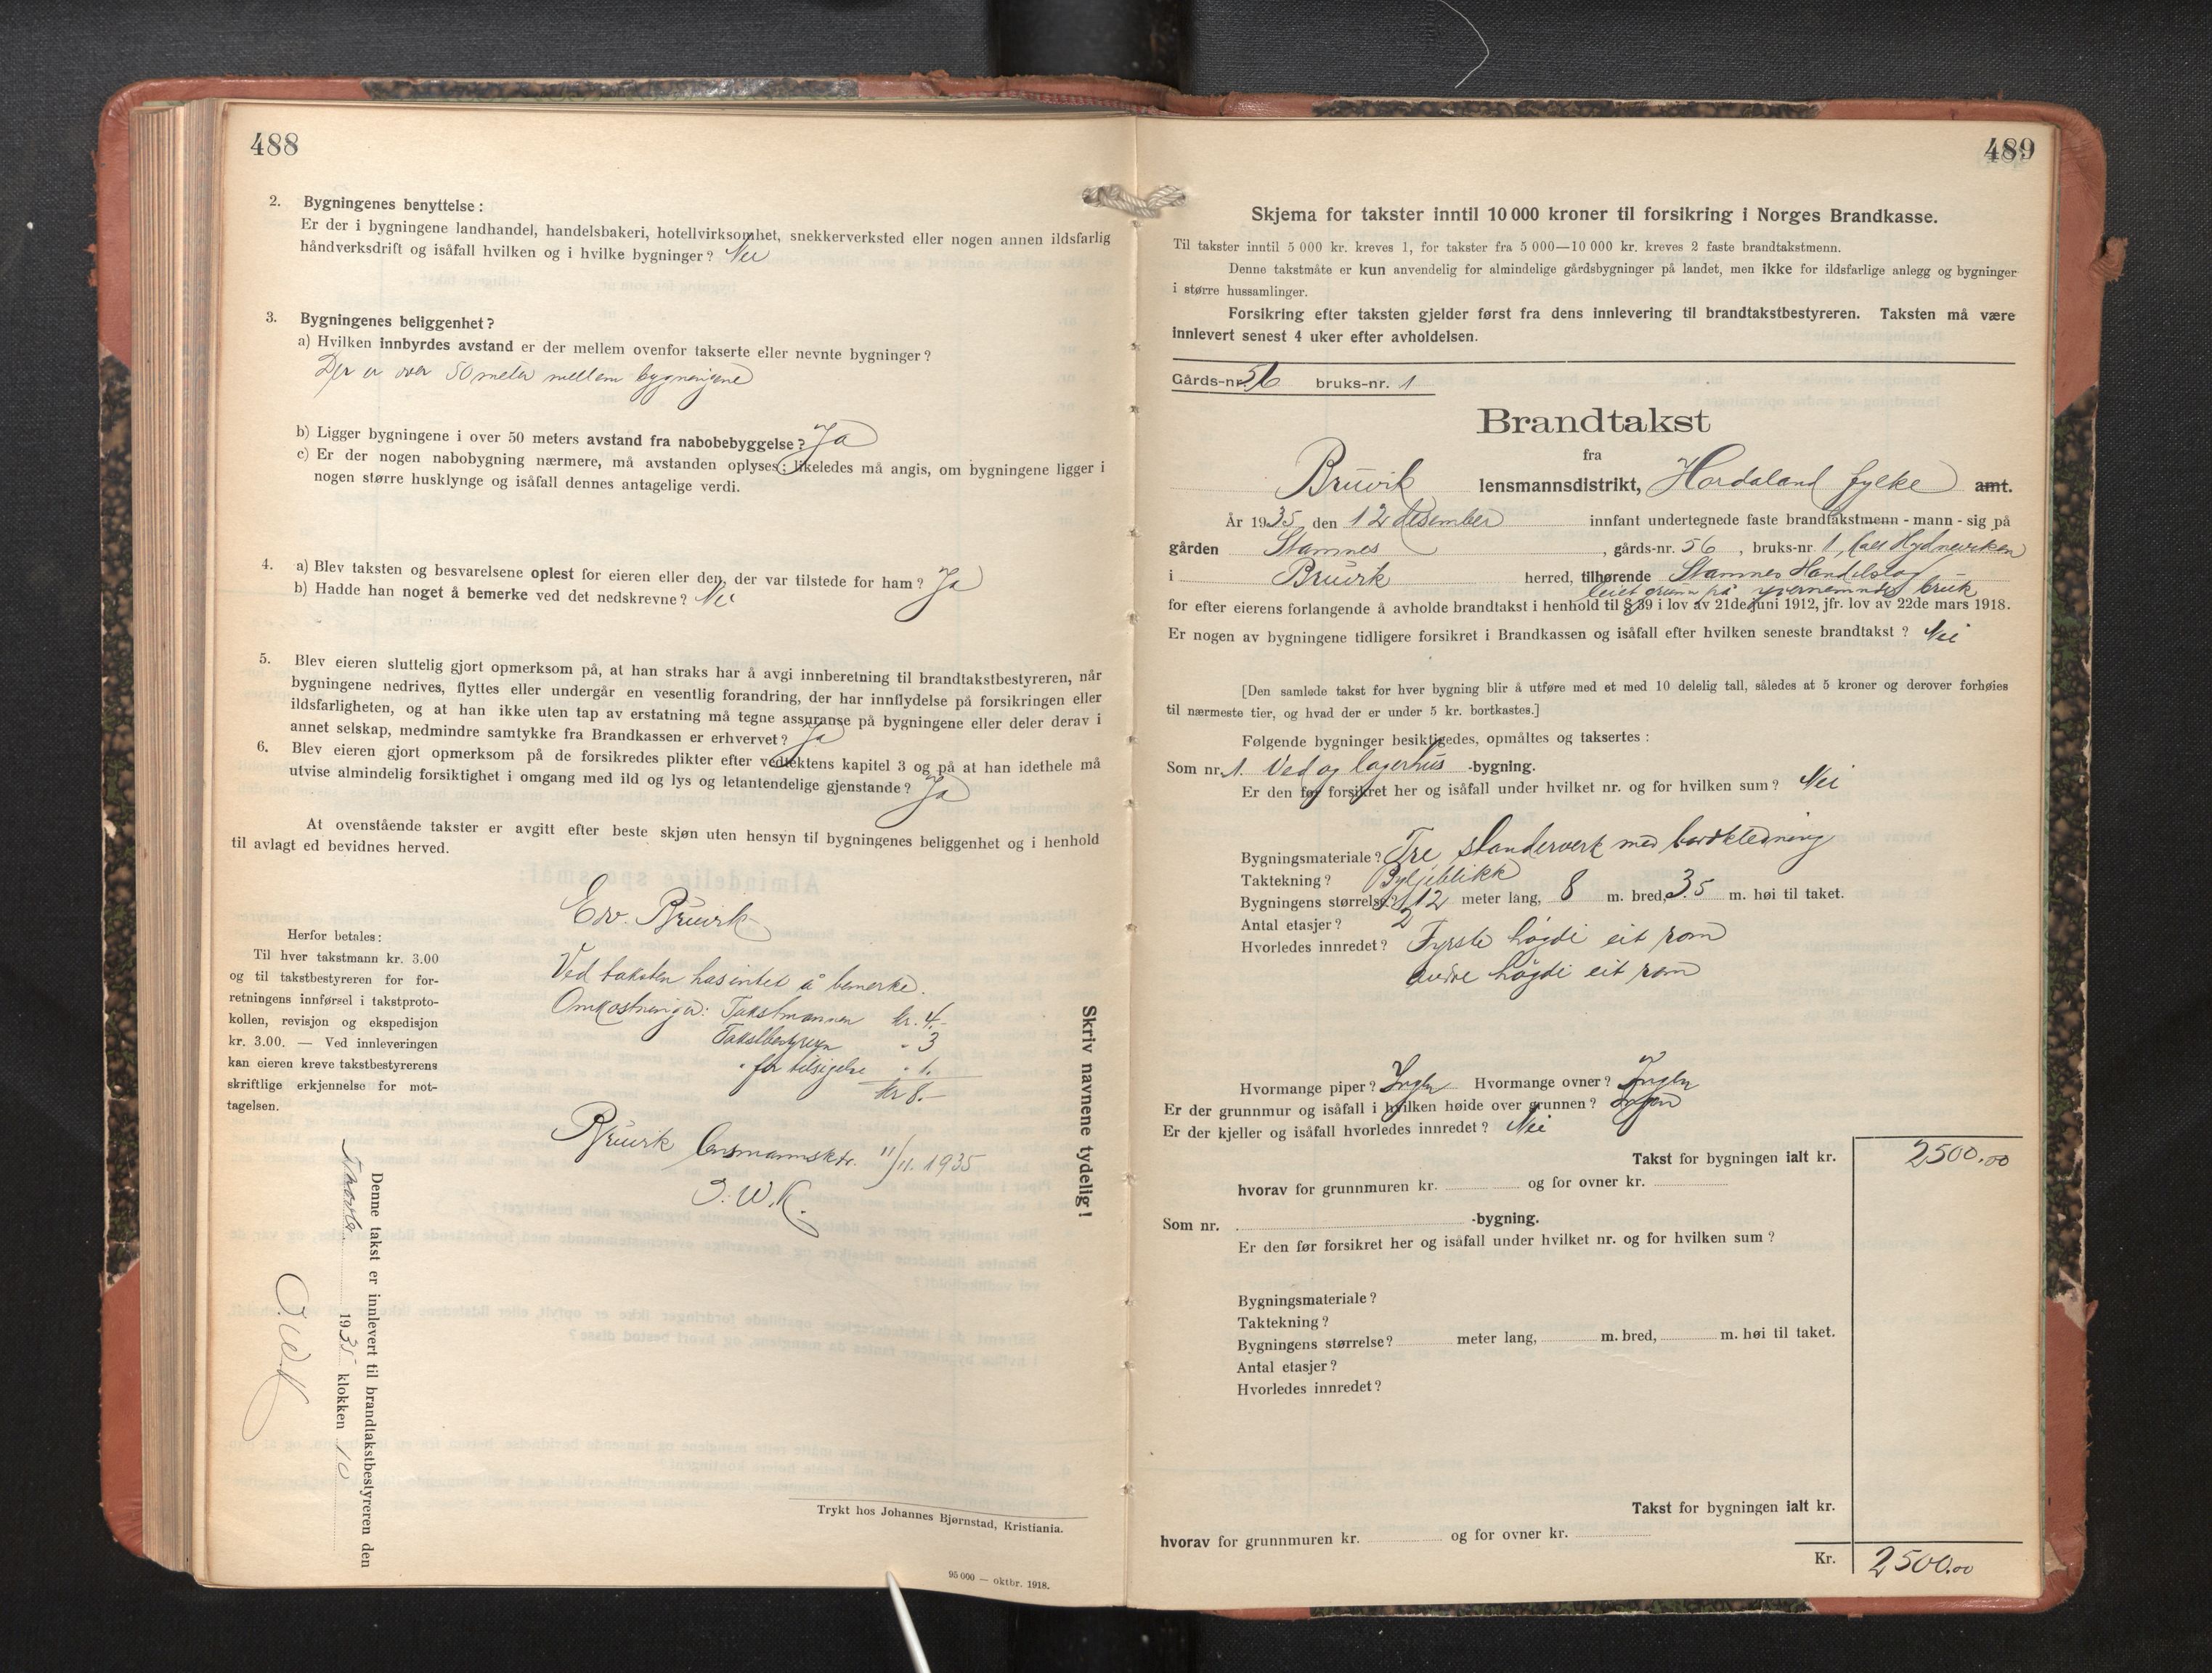 488
2. Bygningenes benyttelse:
Er der i bygningene landhandel, handelsbakeri, hotellvirksomhet, snekkerverksted eller nogen annen ildsfarlig
håndverksdrift og isåfall hvilken og i hvilke bygninger? Nei
3. Bygningenes beliggenhet?
a) Hvilken innbyrdes avstand er der mellem ovenfor takserte eller nevnte bygninger?
Der er over 50 meter mellem bygningene
b) Ligger bygningene i over 50 meters avstand fra nabobebyggelse? Ja
c) Er der nogen nabobygning nærmere, må avstanden oplyses; likeledes må angis, om bygningene ligger i
nogen større husklynge og isåfall dennes antagelige verdi.
4. a) Blev taksten og besvarelsene oplest for eieren eller den, der var tilstede for ham? Ja
b) Hadde han noget å bemerke ved det nedskrevne? Nei
5. Blev eieren sluttelig gjort opmerksom på, at han straks har å avgi innberetning til brandtakstbestyreren, når
bygningene nedrives, flyttes eller undergår en vesentlig forandring, der har innflydelse på forsikringen eller
ildsfarligheten, og at han ikke uten tap av erstatning må tegne assuranse på bygningene eller deler derav i
annet selskap, medmindre samtykke fra Brandkassen er erhvervet? Ja
6. Blev eieren gjort opmerksom på de forsikredes plikter efter vedtektens kapitel 3 og på at han idethele må
utvise almindelig forsiktighet i omgang med ild og lys og letantendelige gjenstande? Ja
At ovenstående takster er avgitt efter beste skjøn uten hensyn til bygningenes beliggenhet og i henhold
til avlagt ed bevidnes herved.
Edv. Bruvik
Herfor betales:
Til hver takstmann kr. 3.00
og til takstbestyreren for for-
retningens innførsel i takstproto-
kollen, revisjon og ekspedisjon
kr. 3.00. — Ved innleveringen
kan eieren kreve takstbestyrerens
skriftlige erkjennelse for mot-
tagelsen.
Ved taksten has intet å bemerke.
Omkostninger: Takstmannen kr. 4.-
Takstbestyreren " 3
" for tilsigelse " 1.
kr 8.-
Bruvik lensmannsktr. 11/11. 1935
O.W.K.
Skriv navnene tydelig!
Denne takst er innlevert til brandtakstbestyreren den
1935 klokken 10
O.W.K
Trykt hos Johannes Bjørnstad, Kristiania.
95 000 — oktbr. 1918.
489
Skjema for takster inntil 10 000 kroner til forsikring i Norges Brandkasse.
Til takster inntil 5 000 kr. kreves 1, for takster fra 5 000—10 000 kr. kreves 2 faste brandtakstmenn.
Denne takstmåte er kun anvendelig for almindelige gårdsbygninger på landet, men ikke for ildsfarlige anlegg og bygninger
i større hussamlinger.
Forsikring efter taksten gjelder først fra dens innlevering til brandtakstbestyreren. Taksten må være
innlevert senest 4 uker efter avholdelsen.
Gårds-nr. 56 bruks-nr. 1
Brandtakst
fra
Bruvik lensmannsdistrikt, Hordaland fylke amt.
År 1935 den 12 desember innfant undertegnede faste brandtakstmenn - mann - sig på
gården Stamnes, gårds-nr. 56, bruks-nr. 1,
i Bruvik herred, tilhørende Stamnes Handelslag
leiet grunn på bruk
for efter eierens forlangende å avholde brandtakst i henhold til § 39 i lov av 21de juni 1912, jfr. lov av 22de mars 1918.
Er nogen av bygningene tidligere forsikret i Brandkassen og isåfall efter hvilken seneste brandtakst? Nei
[Den samlede takst for hver bygning blir å utføre med et med 10 delelig tall, således at 5 kroner og derover forhøies
til nærmeste tier, og hvad der er under 5 kr. bortkastes.]
Følgende bygninger besiktigedes, opmåltes og taksertes:
Som nr. 1. Ved og lagerhus -bygning.
Er den før forsikret her og isåfall under hvilket nr. og for hvilken sum? Nei
Bygningsmateriale? Tre standerverk med bordkledning
Taktekning? Bylgjeblikk
Bygningens størrelse? 12 meter lang, 8 m. bred, 3.5 m. høi til taket.
Antal etasjer? 2
Hvorledes innredet? Fyrste høgdi eit rom
andre høgdi eit rom
Hvormange piper? Ingen Hvormange ovner? Ingen
Er der grunnmur og isåfall i hvilken høide over grunnen? Ingen
Er der kjeller og isåfall hvorledes innredet? Nei
Takst for bygningen ialt kr. 2500.00
hvorav for grunnmuren kr. og for ovner kr.
Som nr. -bygning.
Er den før forsikret her og isåfall under hvilket nr. og for hvilken sum?
Bygningsmateriale?
Taktekning?
Bygningens størrelse? meter lang, m. bred, m. høi til taket.
Antal etasjer?
Hvorledes innredet?
Takst for bygningen ialt kr.
hvorav for grunnmuren kr. og for ovner kr.
Kr. 2500.00